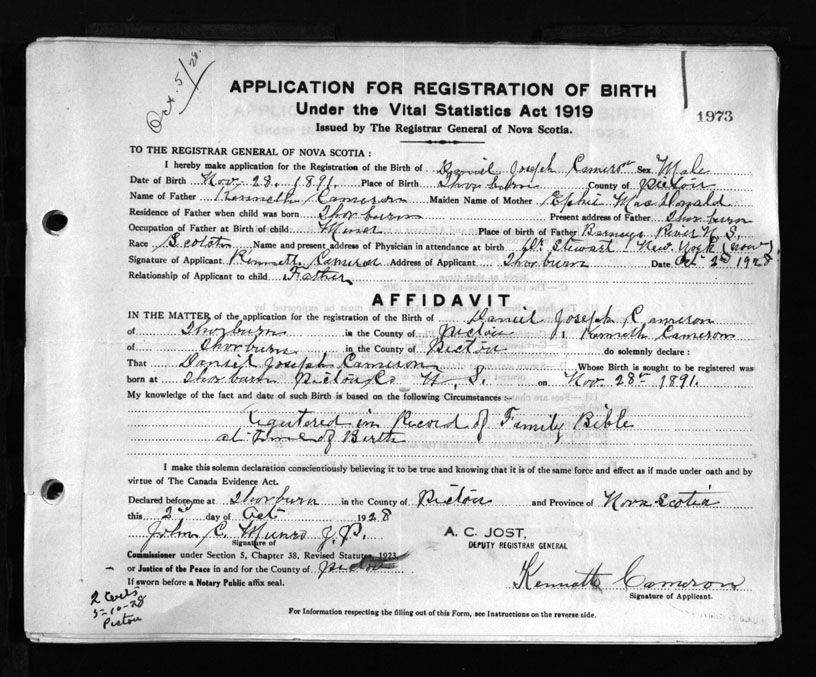 Oct. 5/28.
APPLICATION FOR REGISTRATION OF BIRTH
Under the Vital Statistics Act 1919
1973
Issued by The Registrar General of Nova Scotia.
TO THE REGISTRAR GENERAL OF NOVA SCOTIA :
I hereby make application for the Registration of the Birth of Daniel Joseph Cameron Sex Male
Date of Birth Nov. 28. 1891. Place of Birth Thorburn County of Pictou
Name of Father Kenneth Cameron Maiden Name of Mother Ephie MacDonald
Residence of Father when child was born Thorburn Present address of Father Thorburn
Occupation of Father at Birth of Child Miner Place of birth of Father Barneys River N.S.
Race Scotch Name and present address of Physician in attendance at birth Dr. Stewart New York (now)
Signature of Applicant Kenneth Cameron Address of Applicant Thorburn Date Oct 2nd 1928
Relationship of Applicant to child Father
AFFIDAVIT
IN THE MATTER of the application for the registration of the Birth of Daniel Joseph Cameron
of Thorburn in the County of Pictou I, Kenneth Cameron
of Thorburn in the County of Pictou do solemnly declare :
That Daniel Joseph Cameron Whose Birth is sought to be registered was
born at Thorburn Pictou Co N. S. on Nov. 28th 1891.
My knowledge of the fact and date of such Birth is based on the following Circumstances :-
Registered in Record of Family Bible
at time of Birth
I make this solemn declaration conscientiously believing it to be true and knowing that it is of the same force and effect as if made under oath and by
virtue of The Canada Evidence Act.
Declared before me at Thorburn in the County of Pictou and Province of Nova Scotia
this 2nd day of Oct 1928
John C. Munro J.P.
Signature of
A. C. JOST,
DEPUTY REGISTRAR GENERAL
Commissioner under Section 5, Chapter 38, Revised Statutes, 1923
or Justice of the Peace in and for the County of Pictou
If sworn before a Notary Public affix seal.
Kenneth Cameron
Signature of Applicant.
2 Certs
5-10-28
Pictou
For Information respecting the filling out of this Form, see Instructions on the reverse side.